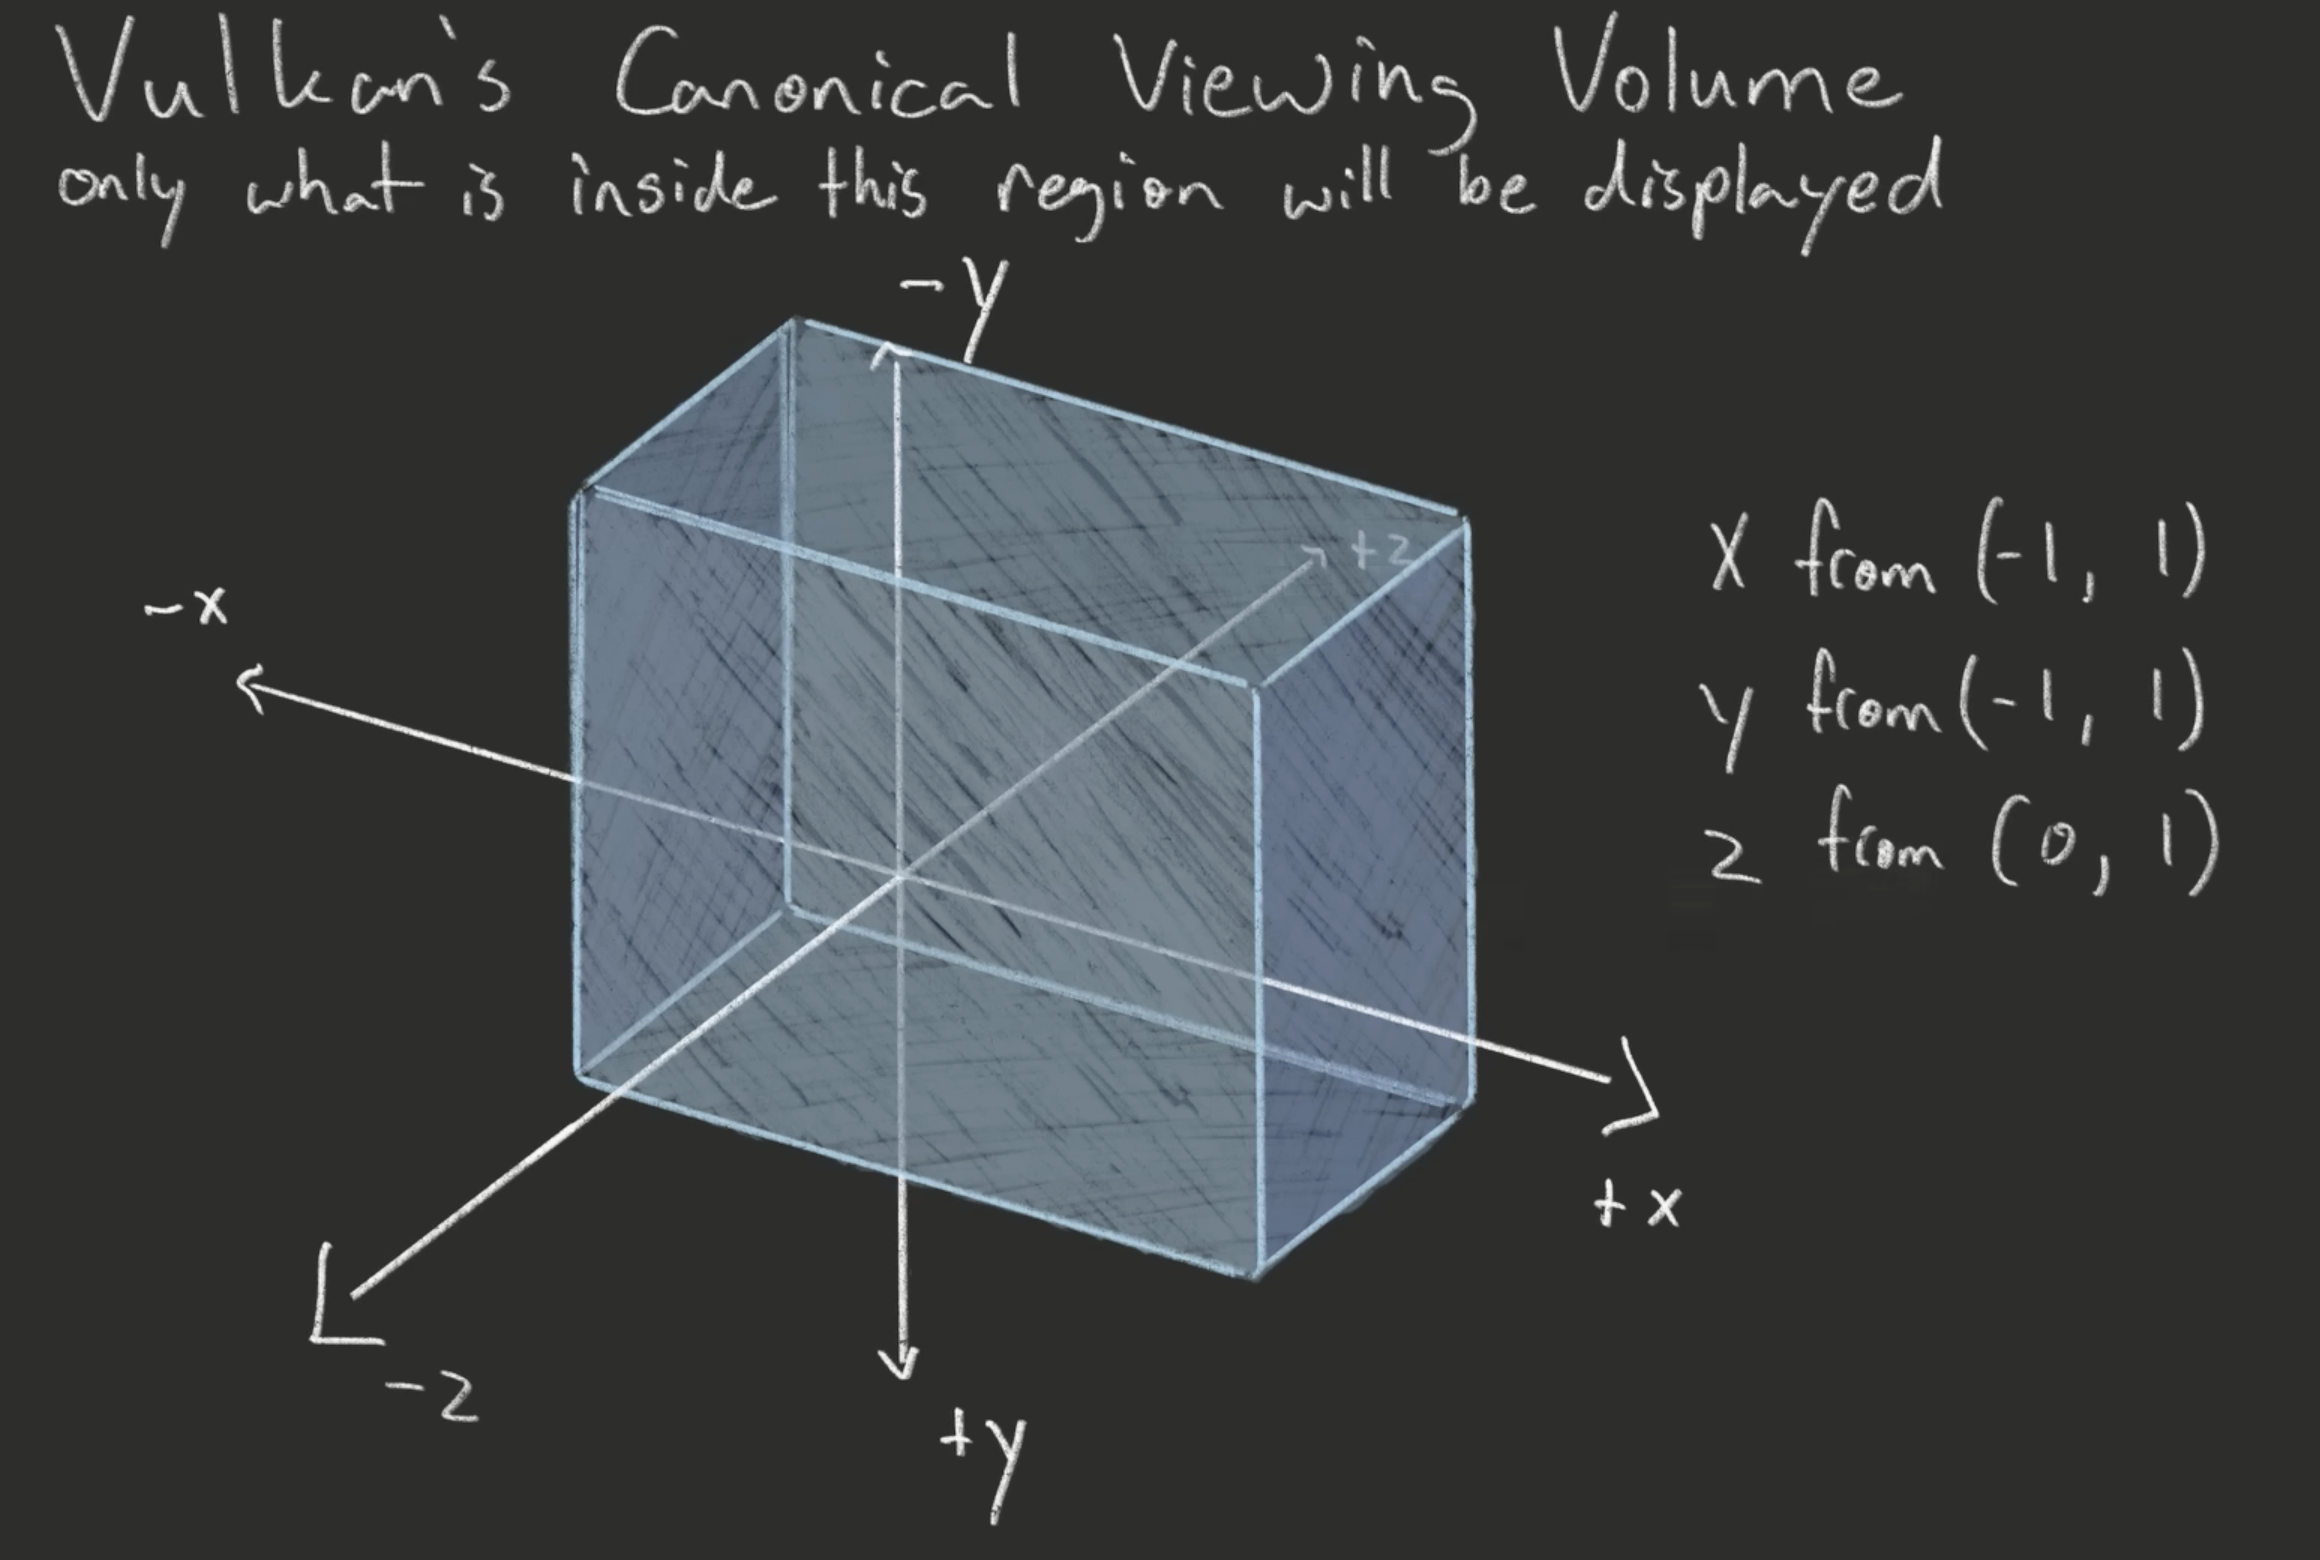 Vulkan's Canonical Viewing Volume
only what is inside this region will be displayed
-y
+z
x from (-1, 1)
-x
y from (-1, 1)
z from (0, 1)
+x
-z
+y